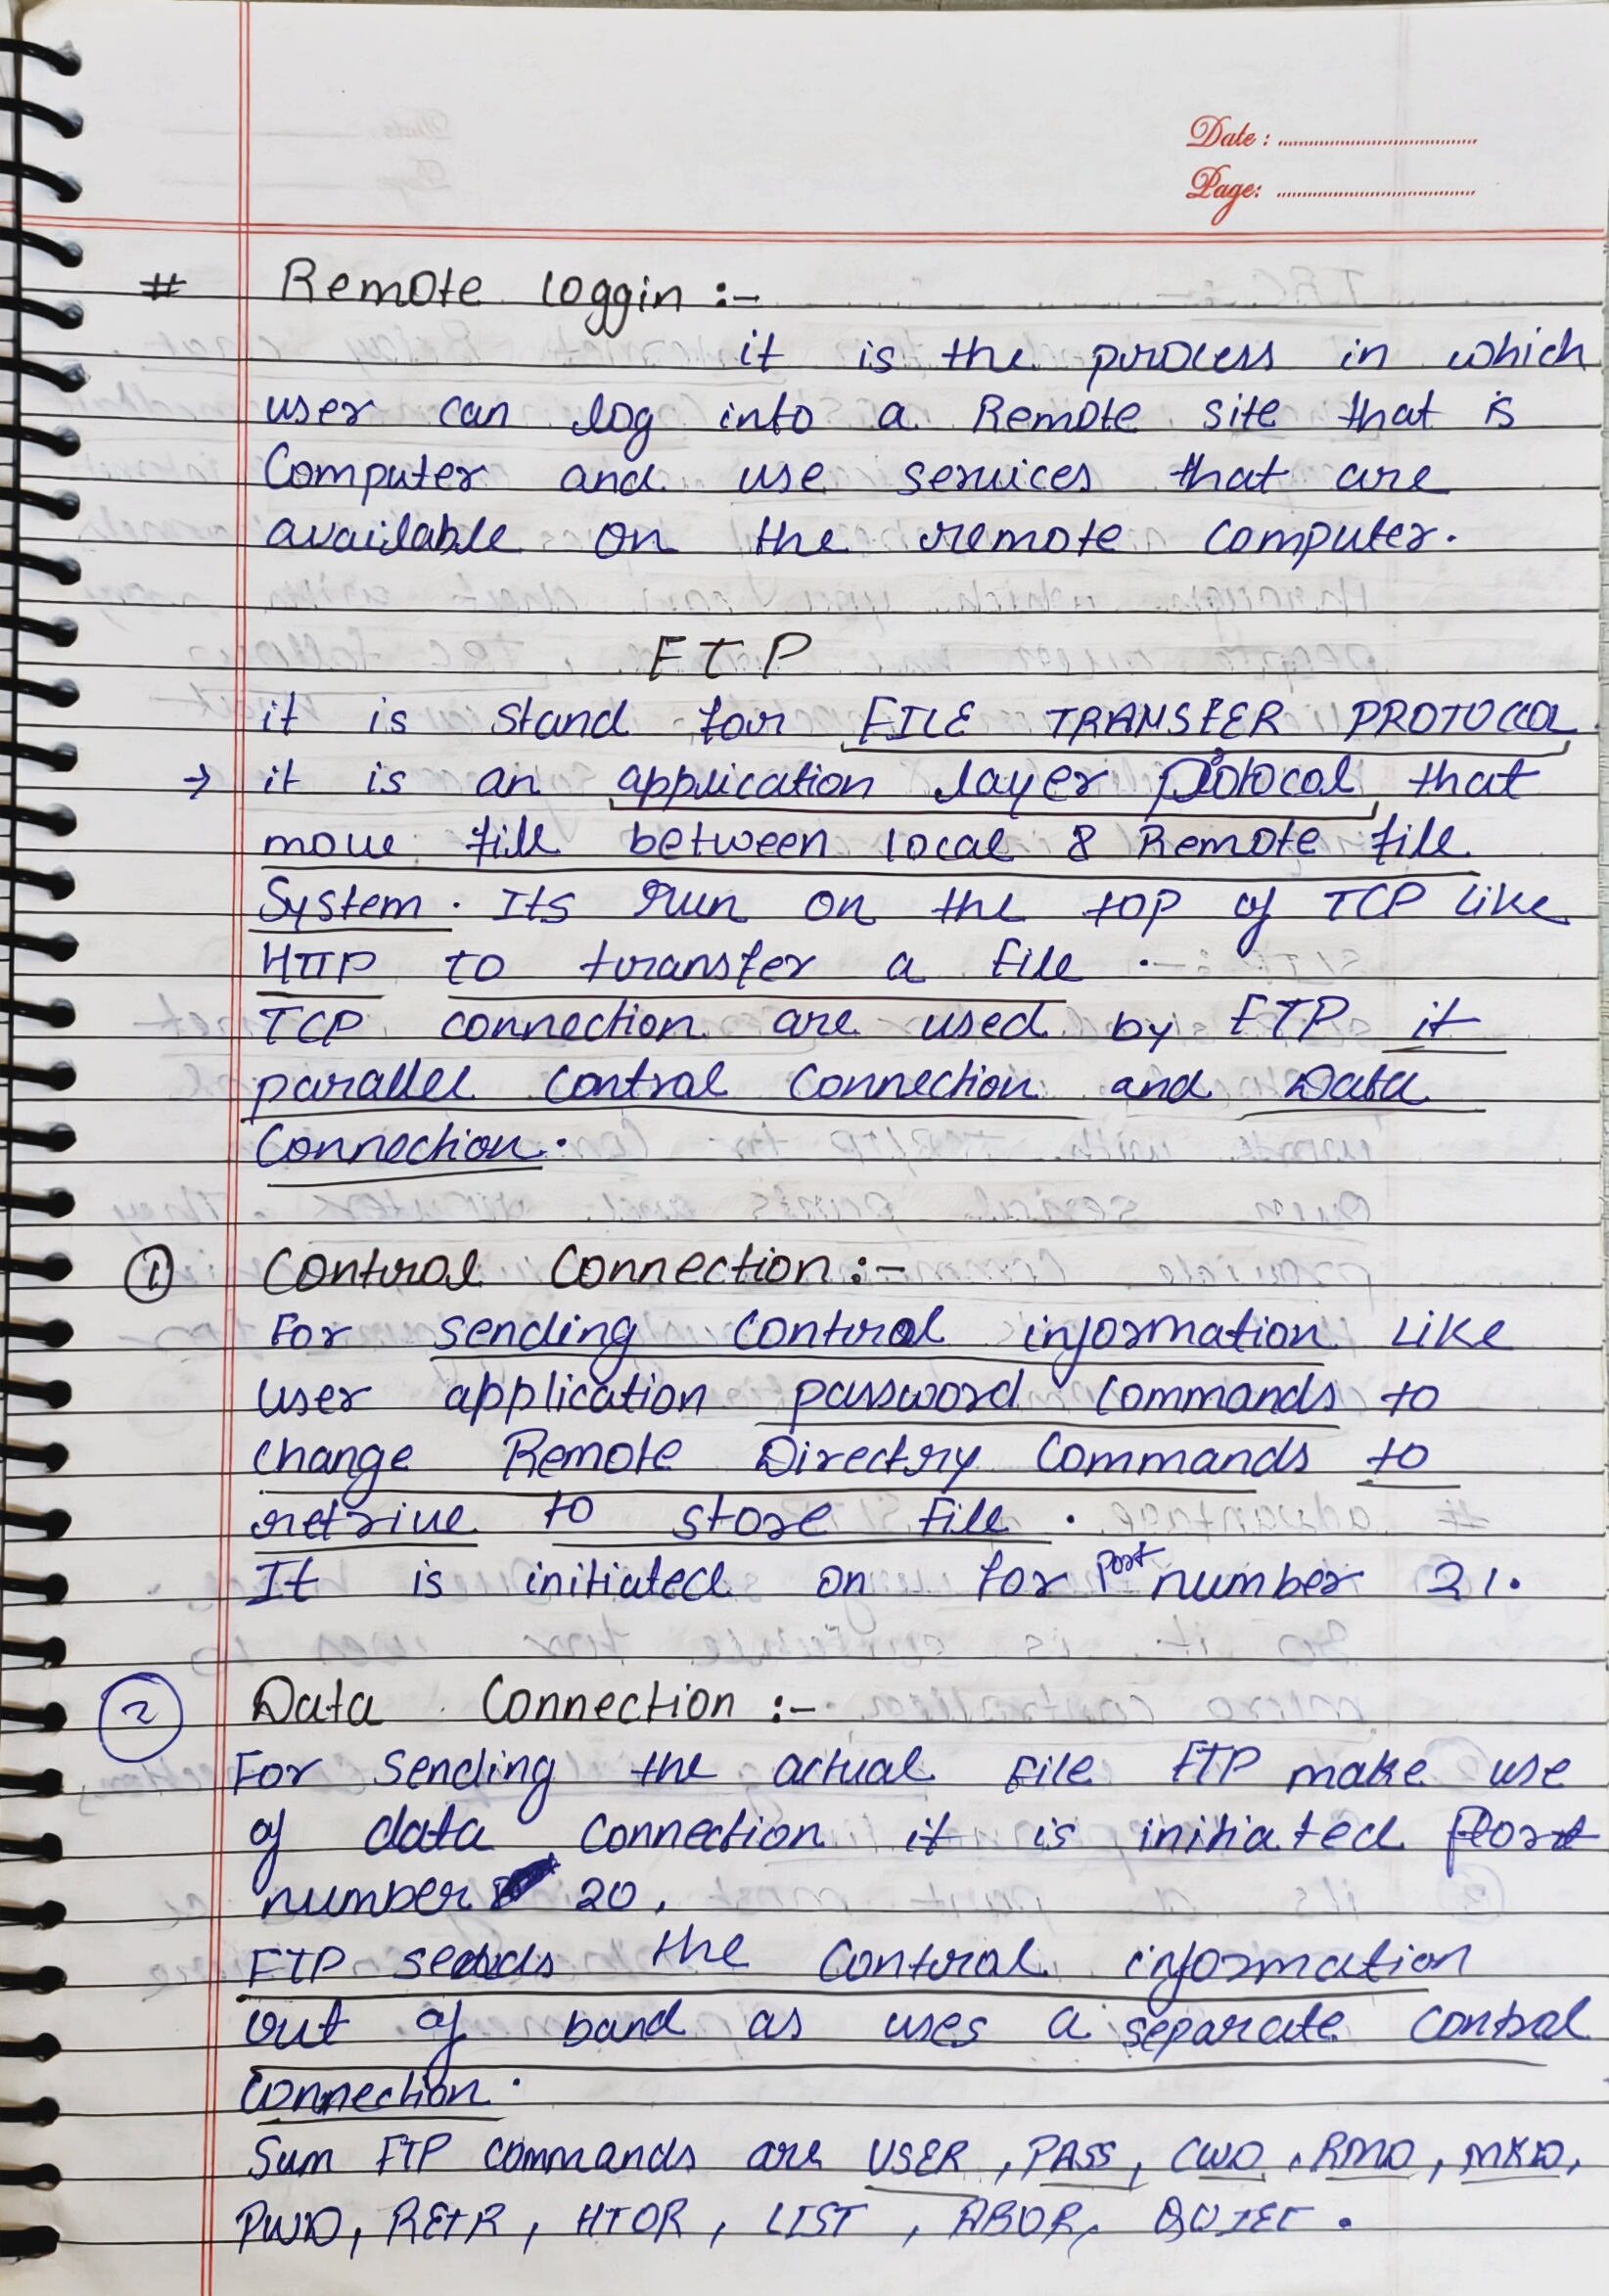 Date : ....................
Page: ....................
# Remote loggin :-
it is the process in which
user can log into a Remote site that is
Computer and use services that are
available on the remote computer.
FTP
it is stand for FILE TRANSFER PROTOCOL.
→ it is an application layer protocol that
move file between local & Remote file
System. Its run on the top of TCP like
HTTP to transfer a file .-
TCP connection are used by FTP it
parallel control connection and Data
Connection.
① Control Connection :-
For sending control information like
user application password commands to
change Remote Directry Commands to
retrive to store file .
It is initiated on for port number 21.
② Data Connection :-
For sending the actual file FTP make use
of data connection it is initiated port
number 20.
FTP sends the control information
out of band as uses a separate control
connection.
Sum FTP commands are USER, PASS, CWD, RMD, MKD,
PWD, RETR, HTOR, LIST, ABOR, QUIET.